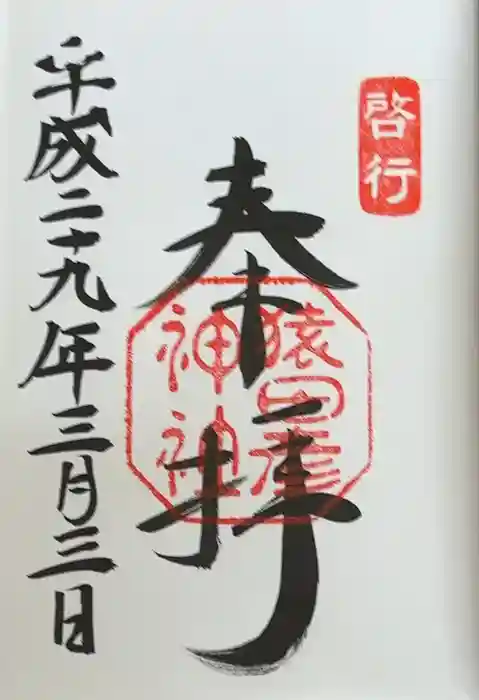 啓行
奉拝
猿田彦
神
平成二十九年三月三日